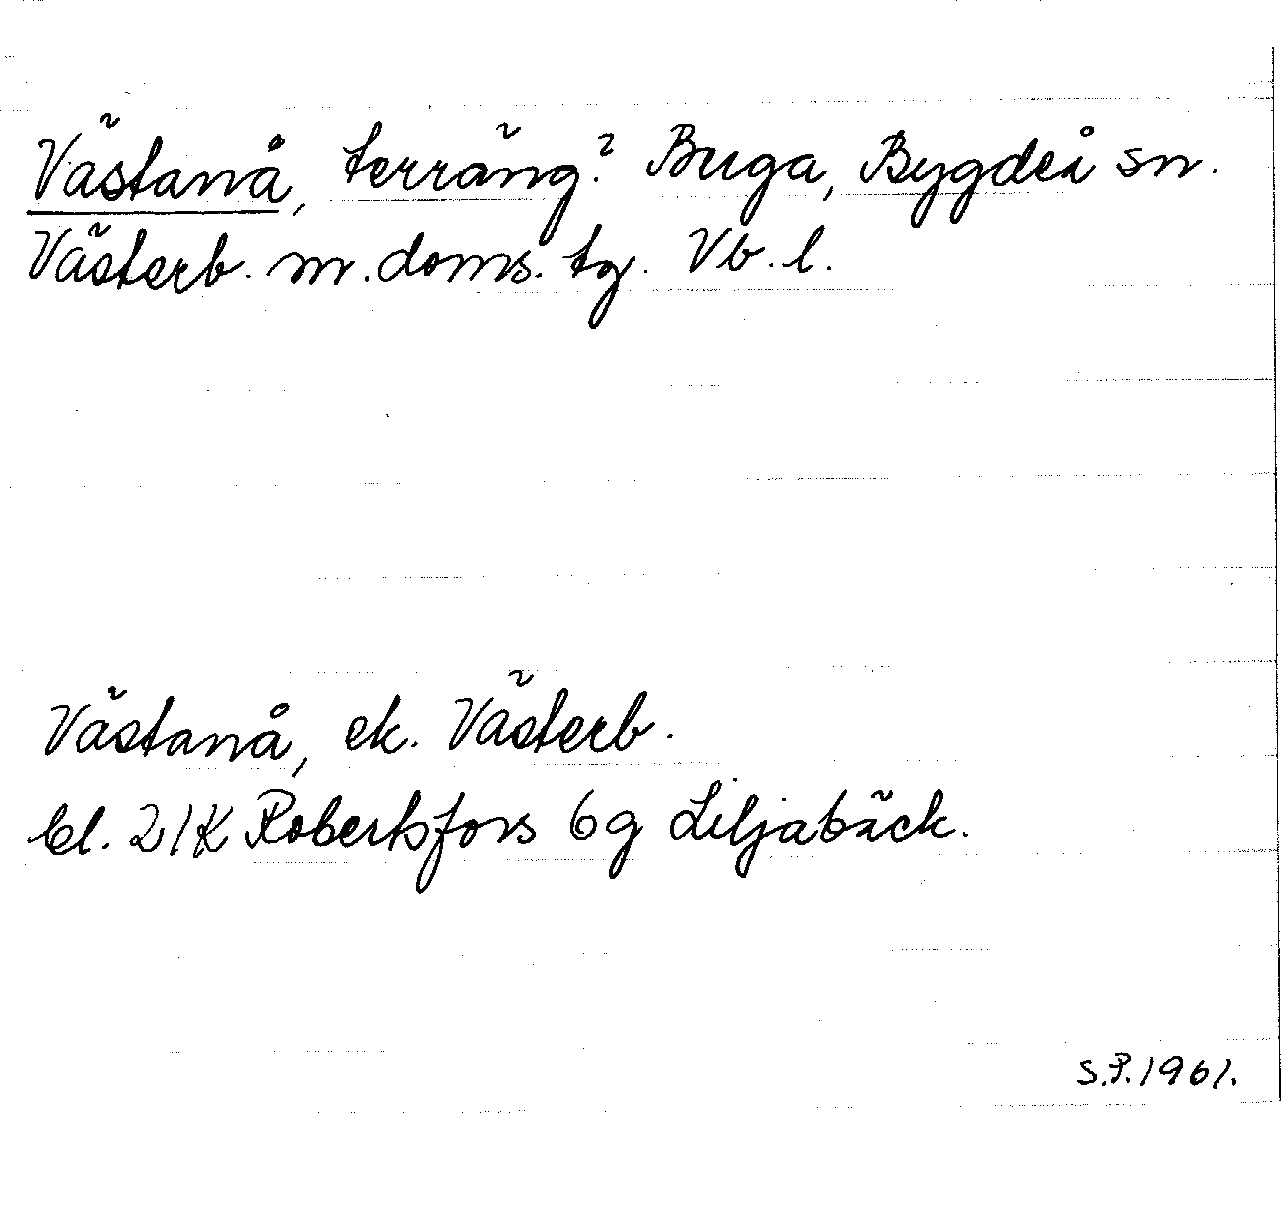 Västanå, terräng? Buga, Bygdeå sn.
Västerb. m. doms. tg. Vb. l.
Västanå, ek. Västerb.
bl. 21K Robertsfors 6g Liljabäck.
S.P. 1961.